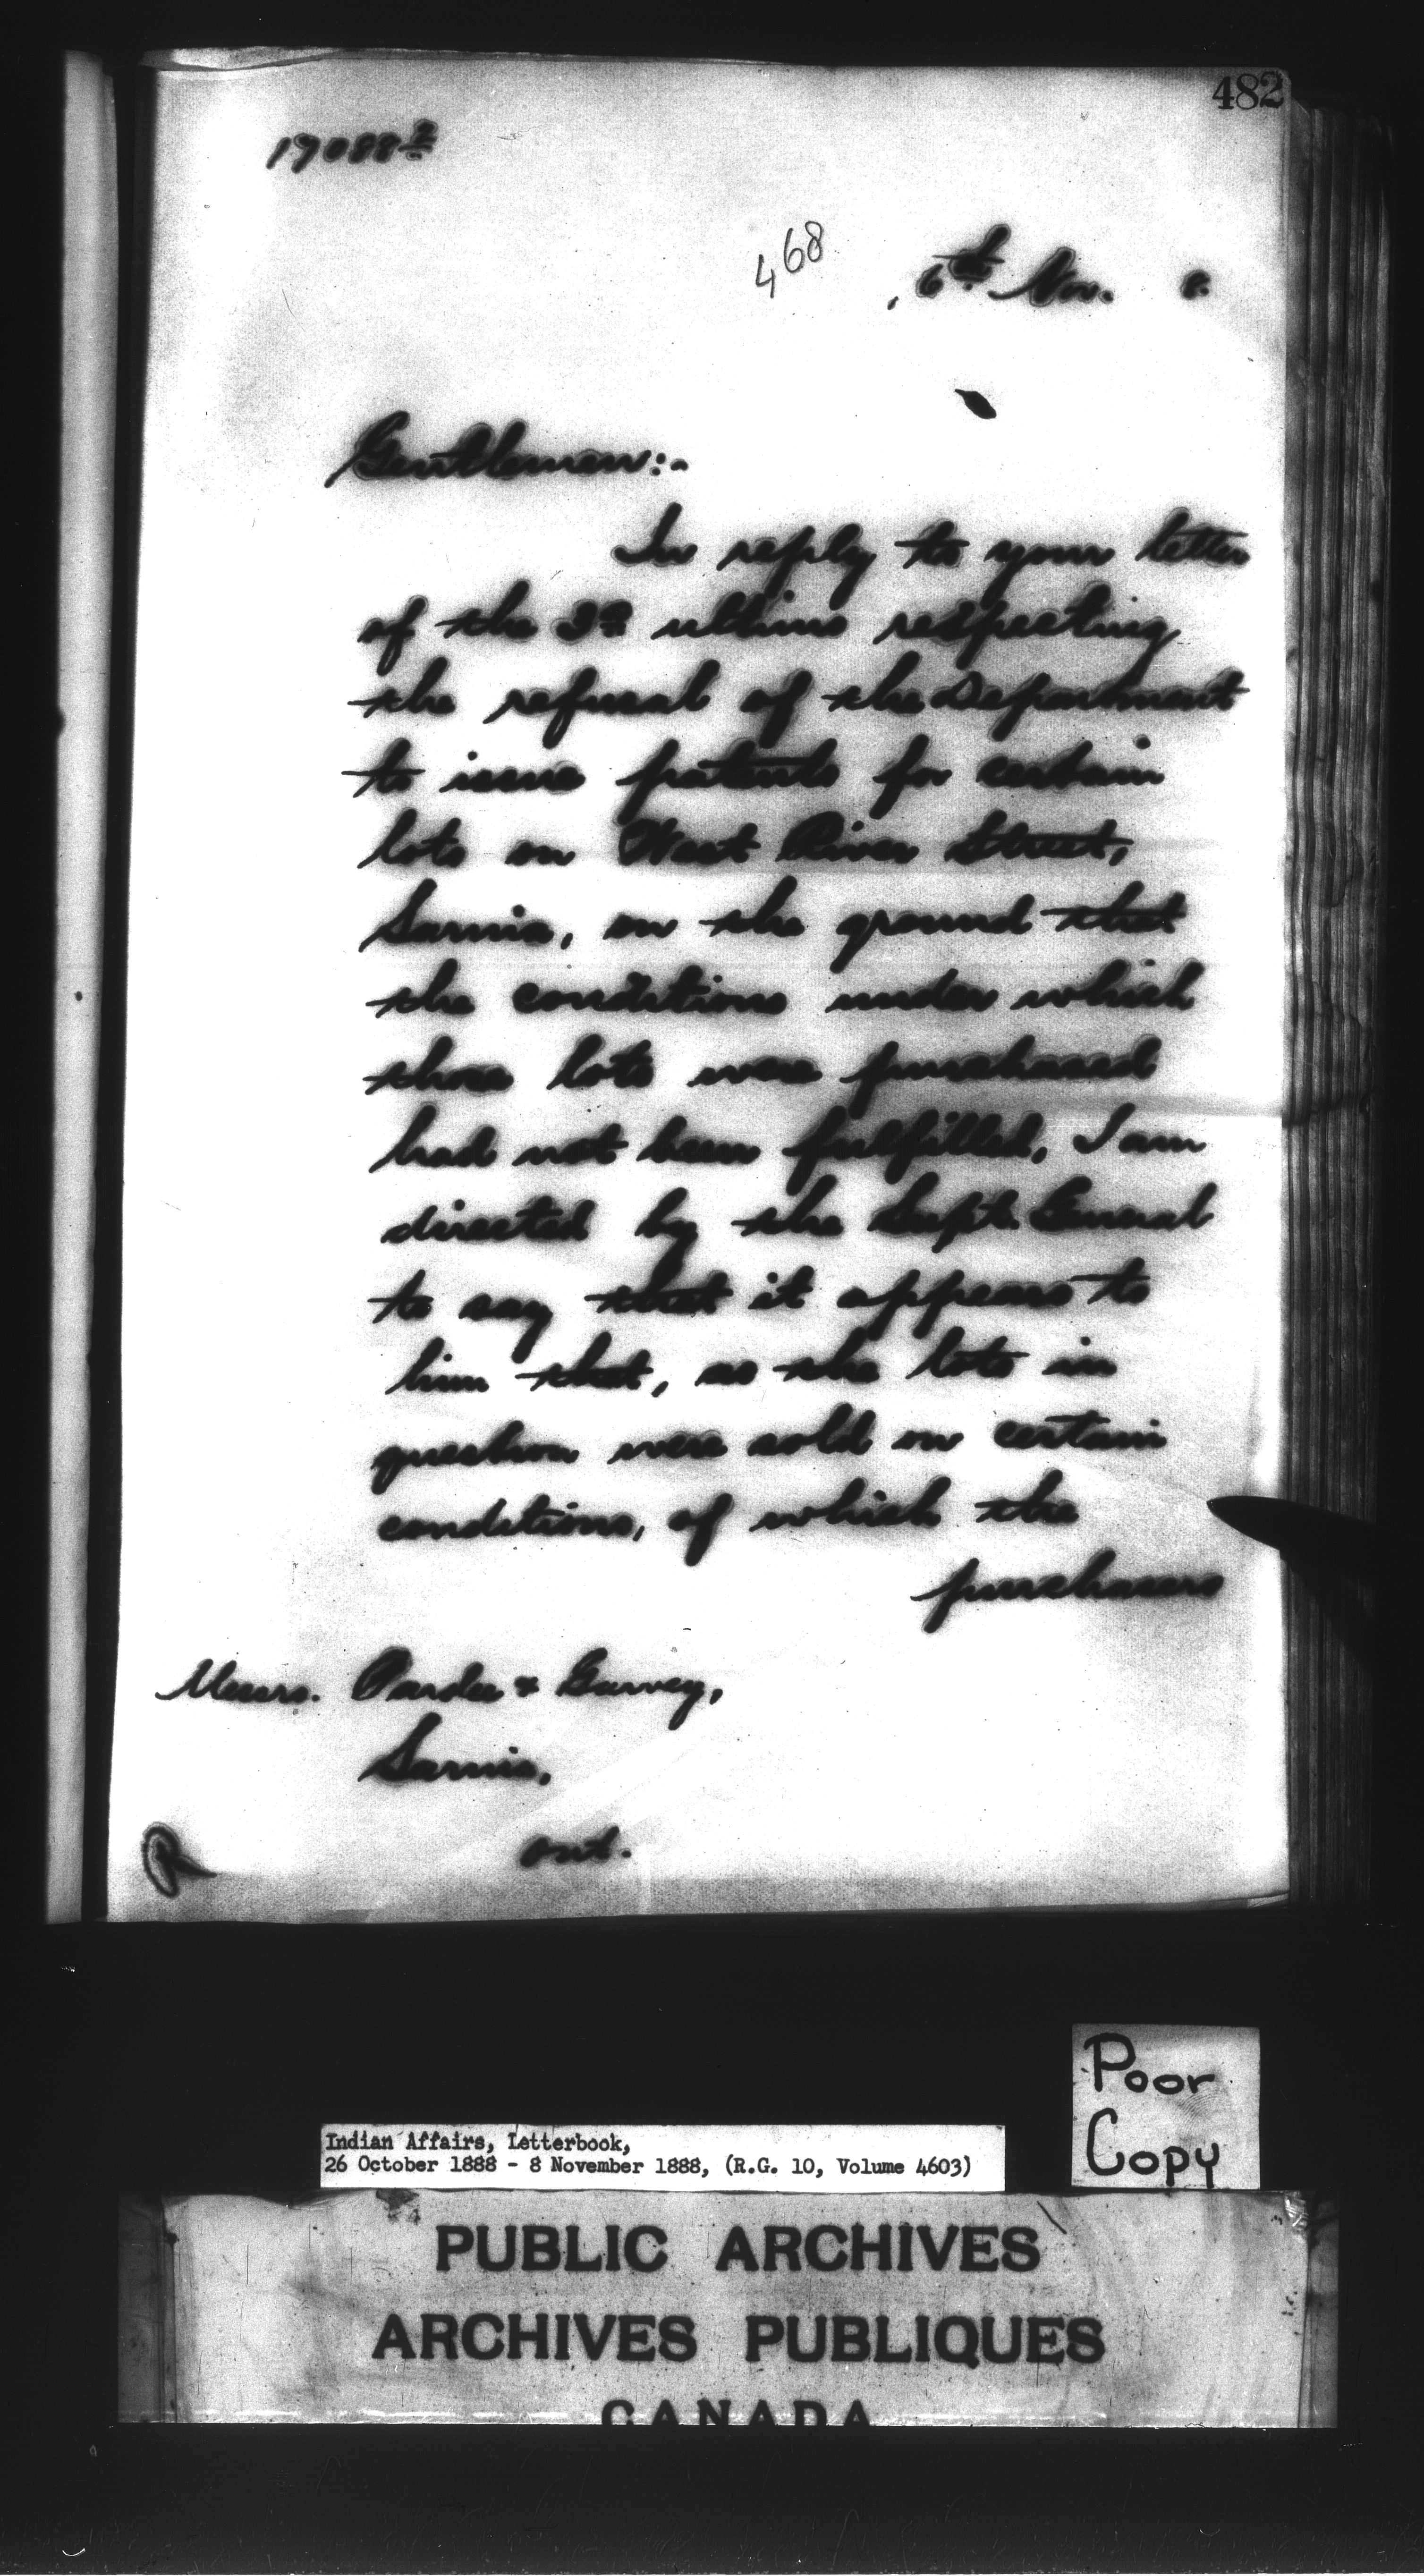 482
19088²
468
, 6th Nov. 8.
Gentlemen:-
In reply to your letter
of the 3rd ultimo respecting
the refusal of the Department
to issue patents for certain
lots on West River Street,
Sarnia, on the ground that
the conditions under which
those lots were purchased
had not been fulfilled, I am
directed by the Supt. General
to say that it appears to
him that, as the lots in
question were sold on certain
conditions, of which the
purchasers
Messrs. Pardee & Garvey,
Sarnia,
Ont.
Poor
Copy
Indian Affairs, Letterbook,
26 October 1888 - 8 November 1888, (R.G. 10, Volume 4603)
PUBLIC ARCHIVES
ARCHIVES PUBLIQUES
CANADA